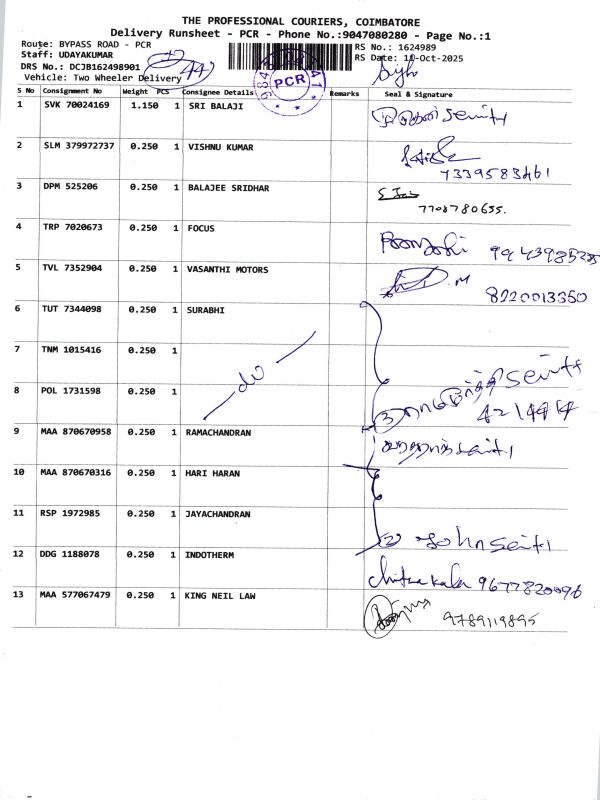 THE PROFESSIONAL COURIERS, COIMBATORE
Delivery Runsheet - PCR - Phone No.:9047080280 - Page No.:1
Route: BYPASS ROAD - PCR RS No.: 1624989
Staff: UDAYAKUMAR RS Date: -Oct-2025
DRS No.: DCJB162498901
Vehicle: Two Wheeler Delivery
PCR
S No Consignment No Weight PCS Consignee Details Remarks Seal & Signature
1 SVK 70024169 1.150 1 SRI BALAJI
2 SLM 379972737 0.250 1 VISHNU KUMAR
7339583461
3 DPM 525206 0.250 1 BALAJEE SRIDHAR
7708780655.
4 TRP 7020673 0.250 1 FOCUS
5 TVL 7352904 0.250 1 VASANTHI MOTORS
8220013350
6 TUT 7344098 0.250 1 SURABHI
7 TNM 1015416 0.250 1
8 POL 1731598 0.250 1
- do -
9 MAA 870670958 0.250 1 RAMACHANDRAN
10 MAA 870670316 0.250 1 HARI HARAN
11 RSP 1972985 0.250 1 JAYACHANDRAN
12 DDG 1188078 0.250 1 INDOTHERM
Chitrakala 9677820096
13 MAA 577067479 0.250 1 KING NEIL LAW
9789119895